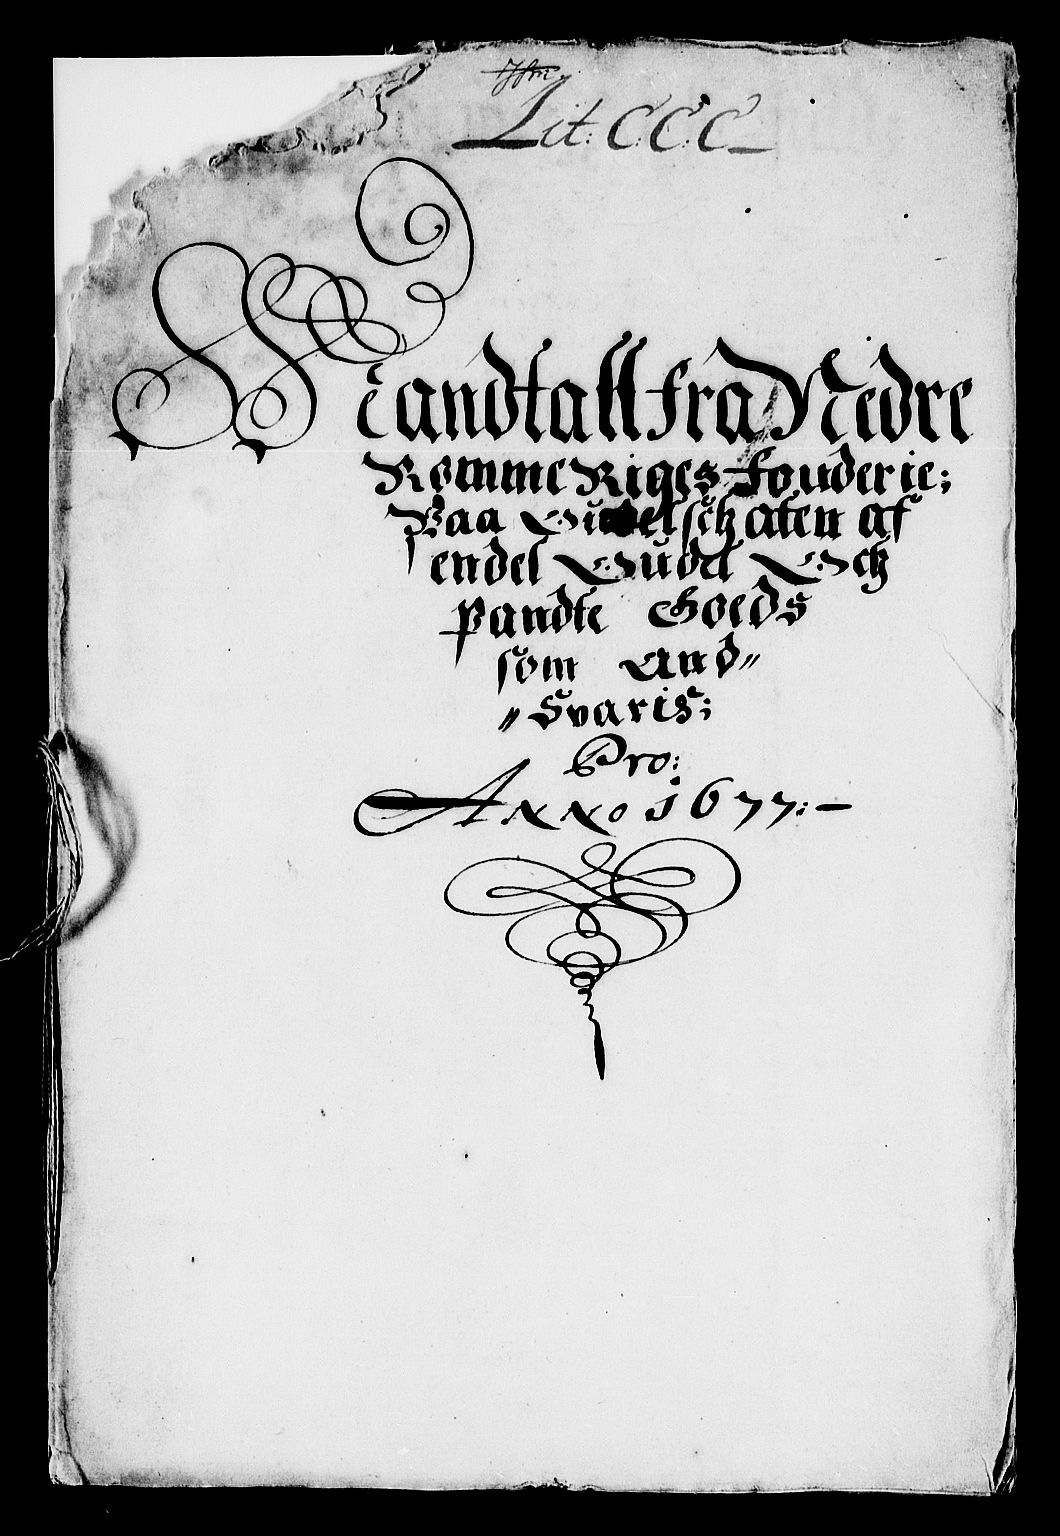 Lit: C: C: C
Mandtall fra Nedre
Romme Riges fouderie;
Paa Oudelschaten af
endel Oudel Och
pandte Goeds
som And„
„Svaris;
Pro:
Anno 1677:—